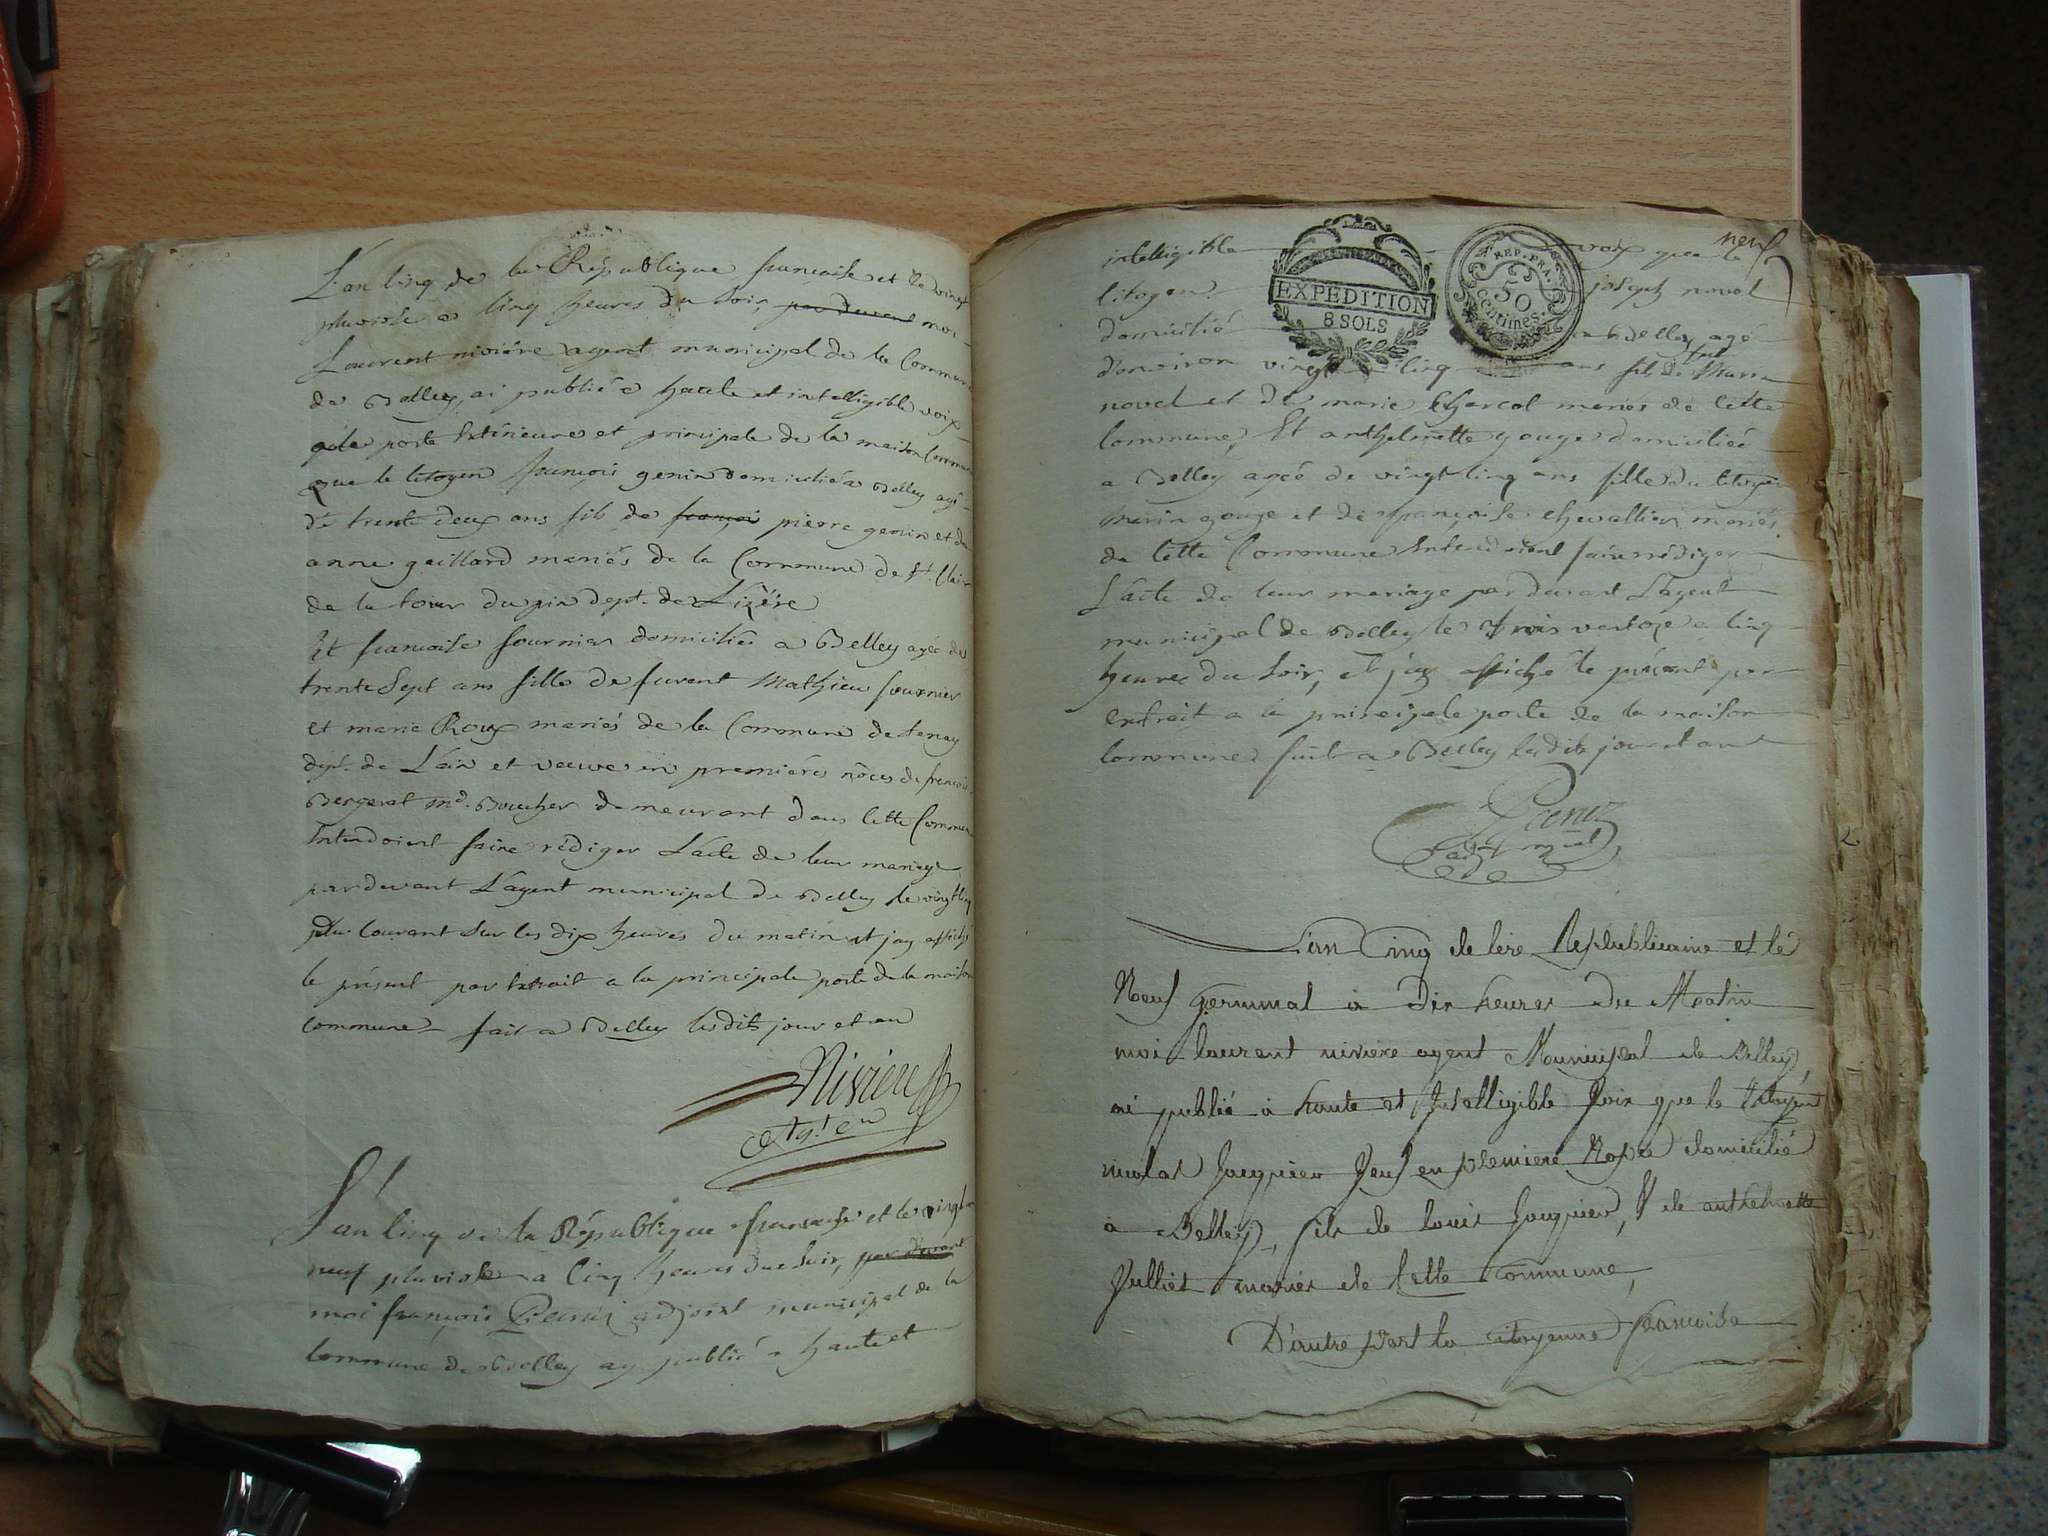 L'an cinq de la République française et le vingt
pluviose a cinq heures du soir, par devant moi
Laurent nivière agent municipal de la Commune
de Belley, ai publié a haute et intelligible voix
a la porte Extérieure et principale de la maison Commune
que le citoyen françois genin domicilié a Belley agé
de trente deux ans fils de françois pierre genin et de
anne gaillard mariés de la Commune de St. Clair
de la tour du pin dept. de Lizère
Et françoise fournier domiciliée a Belley agée de
trente Sept ans fille de furent Mathieu fournier
et marie Roux mariés de la Commune de tenay
dept. de L'ain et veuve en premières nôces de francois
Bergerat md. Boucher demeurant dans cette Commune
Entendoient faire rédiger L'acte de leur mariage
par devant L'agent municipal de Belley le vingt cinq
du courant sur les dix heures du matin et jay affiché
le présent par Extrait a la principale porte de la maison
commune fait a Belley lesdits jour et an
Nivière
Agt. Cn
L'an cinq de la République française et le vingt
neuf pluviose a cinq heures du soir, par devant
moi françois adjoint municipal de la
commune de Belley ay publié a haute et
neuf
intelligible voix que le
citoyen joseph novel
EXPEDITION
8 SOLS
REP. FRA.
50
centimes.
domicilié a Belley agé
d'environ vingt cinq ans fils de
novel et de marie Charcot mariés de cette
commune, Et anthelmette gouge domiciliée
a Belley agée de vingt cinq ans fille du citoyen
gouge et de françoise chevallier mariés
de cette Commune Entendoient faire rédiger
L'acte de leur mariage par devant L'agent
municipal de Belley le trois ventose a cinq
heures du soir, et jay affiché le présent par
extrait a la principale porte de la maison
commune fait a Belley lesdits jour et an
L'an Cinq de l'ère Republicaine et le
Neuf germinal à Dix heures du Matin
moi laurent niviere agent Municipal de Belley,
ai publié à haute et Intelligible voix que le Citoyen
nicolas Jacquier veuf en premiere Nopce domicilié
a Belley, fils de louis Jacquier, & de anthelmette
Julliet mariés de Cette Commune,
D'autre part la citoyenne francoise